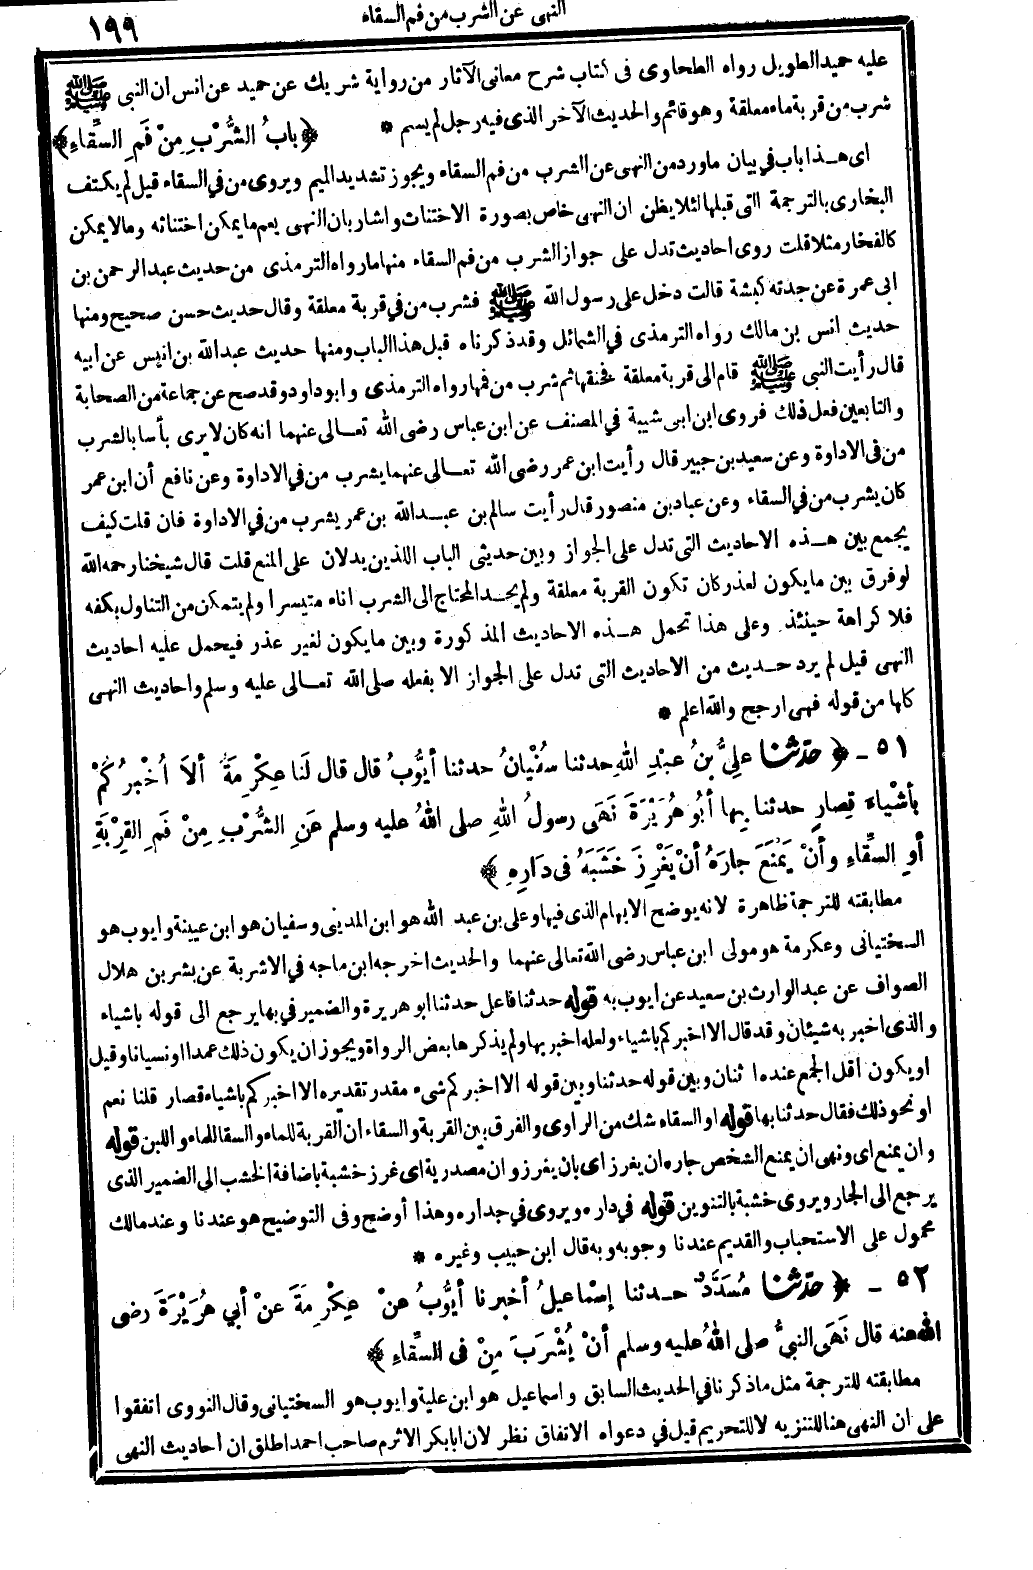 النهى عن الشرب من فم السقاء
١٩٩
عليه حميد الطويل رواه الطحاوى فى كتاب شرح معانى الآثار من رواية شريك عن حميد عن انس ان النبى ﷺ
شرب من قربة ماء معلقة وهو قائم والحديث الآخر الذى فيه رجل لم يسم *
﴿ بابُ الشُّرْبِ مِنْ فَمِ السِّقَاءِ ﴾
اى هـذا باب في بيان ماورد من النهى عن الشرب من فم السقاء ويجوز تشديد الميم ويروى من في السقاء قيل لم يكتف
البخارى بالترجمة التى قبلها لئلا يظن ان النهى خاص بصورة الاختناث واشار بان النهى يعم ما يمكن اختناثه ومالا يمكن
كالفخار مثلا قلت روى احاديث تدل على جواز الشرب من فم السقاء منها ما رواه الترمذى من حديث عبد الرحمن بن
ابى عمرة عن جدته كبشة قالت دخل على رسول الله ﷺ فشرب من في قربة معلقة وقال حديث حسن صحيح ومنها
حديث انس بن مالك رواه الترمذى في الشمائل وقد ذكرناه قبل هذا الباب ومنها حديث عبد الله بن انيس عن ابيه
قال رأيت النبى ﷺ قام الى قربة معلقة فخنقها ثم شرب من فمها رواه الترمذى وابو داود وقد صح عن جماعة من الصحابة
والتابعين فعل ذلك فروى ابن ابى شيبة في المصنف عن ابن عباس رضى الله تعـالى عنهما انه كان لا يرى بأسا بالشرب
من فى الاداوة وعن سعيد بن جبير قال رأيت ابن عمر رضى الله تعـالى عنهما يشرب من في الاداوة وعن نافع أن ابن عمر
كان يشرب من في السقاء وعن عباد بن منصور قال رأيت سالم بن عبـد الله بن عمر يشرب من في الاداوة فان قلت كيف
يجمع بين هـذه الاحاديث التى تدل على الجواز وبين حديثى الباب اللذين يدلان على المنع قلت قال شيخنا رحمه الله
لو فرق بين مايكون لعذر كان تكون القربة معلقة ولم يجـد المحتاج الى الشرب اناء متيسرا ولم يتمكن من التناول بكفه
فلا كراهة حينئذ وعلى هذا تحمل هـذه الاحاديث المذكورة وبين مايكون لغير عذر فيحمل عليه احاديث
النهى قيل لم يرد حـديث من الاحاديث التى تدل على الجواز الا بفعله صلى الله تعـالى عليه وسلم واحاديث النهى
كلها من قوله فهى ارجح والله اعلم *
٥١ - ﴿ حدّثنا علِيُّ بنُ عبْدِ اللهِ حدثنا سُفْيانُ حدثنا أيُّوبُ قال قال لَنا عِكْرِمَةُ ألاَ أُخْبِرُكُمْ
بأشْياءَ قِصارٍ حدثنا بِها أبُو هُرَيْرَةَ نَهَى رسولُ اللهِ صلى اللهُ عليه وسلم عَنِ الشُّرْبِ مِنْ فَمِ القِرْبَةِ
أوِ السِّقَاءِ وأنْ يَمْنَعَ جارَهُ أنْ يَغْرِزَ خَشَبَهُ فى دَارِهِ ﴾
مطابقته للترجمة ظاهرة لانه يوضح الابهام الذى فيها وعلى بن عبد الله هو ابن المدينى وسفيان هو ابن عيينة وايوب هو
السختيانى وعكرمة هو مولى ابن عباس رضى الله تعالى عنهما والحديث اخرجه ابن ماجه في الاشربة عن بشر بن هلال
الصواف عن عبد الوارث بن سعيد عن ايوب به قوله حدثنا فاعل حدثنا ابو هريرة والضمير في بها يرجع الى قوله باشياء
والذى اخبر به شيئان وقد قال الا اخبركم باشياء ولعله اخبر بها ولم يذكرها بعض الرواة ويجوز ان يكون ذلك عمدا او نسيانا وقيل
او يكون اقل الجمع عنده اثنان وبين قوله حدثنا وبين قوله الا اخبركم شىء مقدر تقديره الا اخبركم باشياء قصار قلنا نعم
او نحو ذلك فقال حدثنا بها قوله او السقاء شك من الراوى والفرق بين القربة والسقاء ان القربة للماء والسقا للماء واللبن قوله
وان يمنع اى ونهى ان يمنع الشخص جاره ان يغرز اى بان يغرز وان مصدرية اى غرز خشبة باضافة الخشب الى الضمير الذى
يرجع الى الجار ويروى خشبة بالتنوين قوله في داره ويروى في جداره وهذا أوضح وفى التوضيح هو عندنا وعند مالك
محمول على الاستحباب والقديم عندنا وجوبه وبه قال ابن حبيب وغيره *
٥٢ - ﴿ حدّثنا مُسَدَّدٌ حـدثنا إسْماعيلُ أخبرنا أيُّوبُ عنْ عِكْرِمَةَ عَنْ أبي هُرَيْرَةَ رضى
اللهُ عنه قال نَهَى النبىُّ صلى اللهُ عليه وسلم أنْ يُشْرَبَ مِنْ فى السِّقَاءِ ﴾
مطابقته للترجمة مثل ماذكرنا في الحديث السابق واسماعيل هو ابن علية وايوب هو السختيانى وقال النووى اتفقوا
على ان النهى هنا للتنزيه لا للتحريم قيل في دعواه الاتفاق نظر لان ابا بكر الاثرم صاحب احمد اطلق ان احاديث النهى